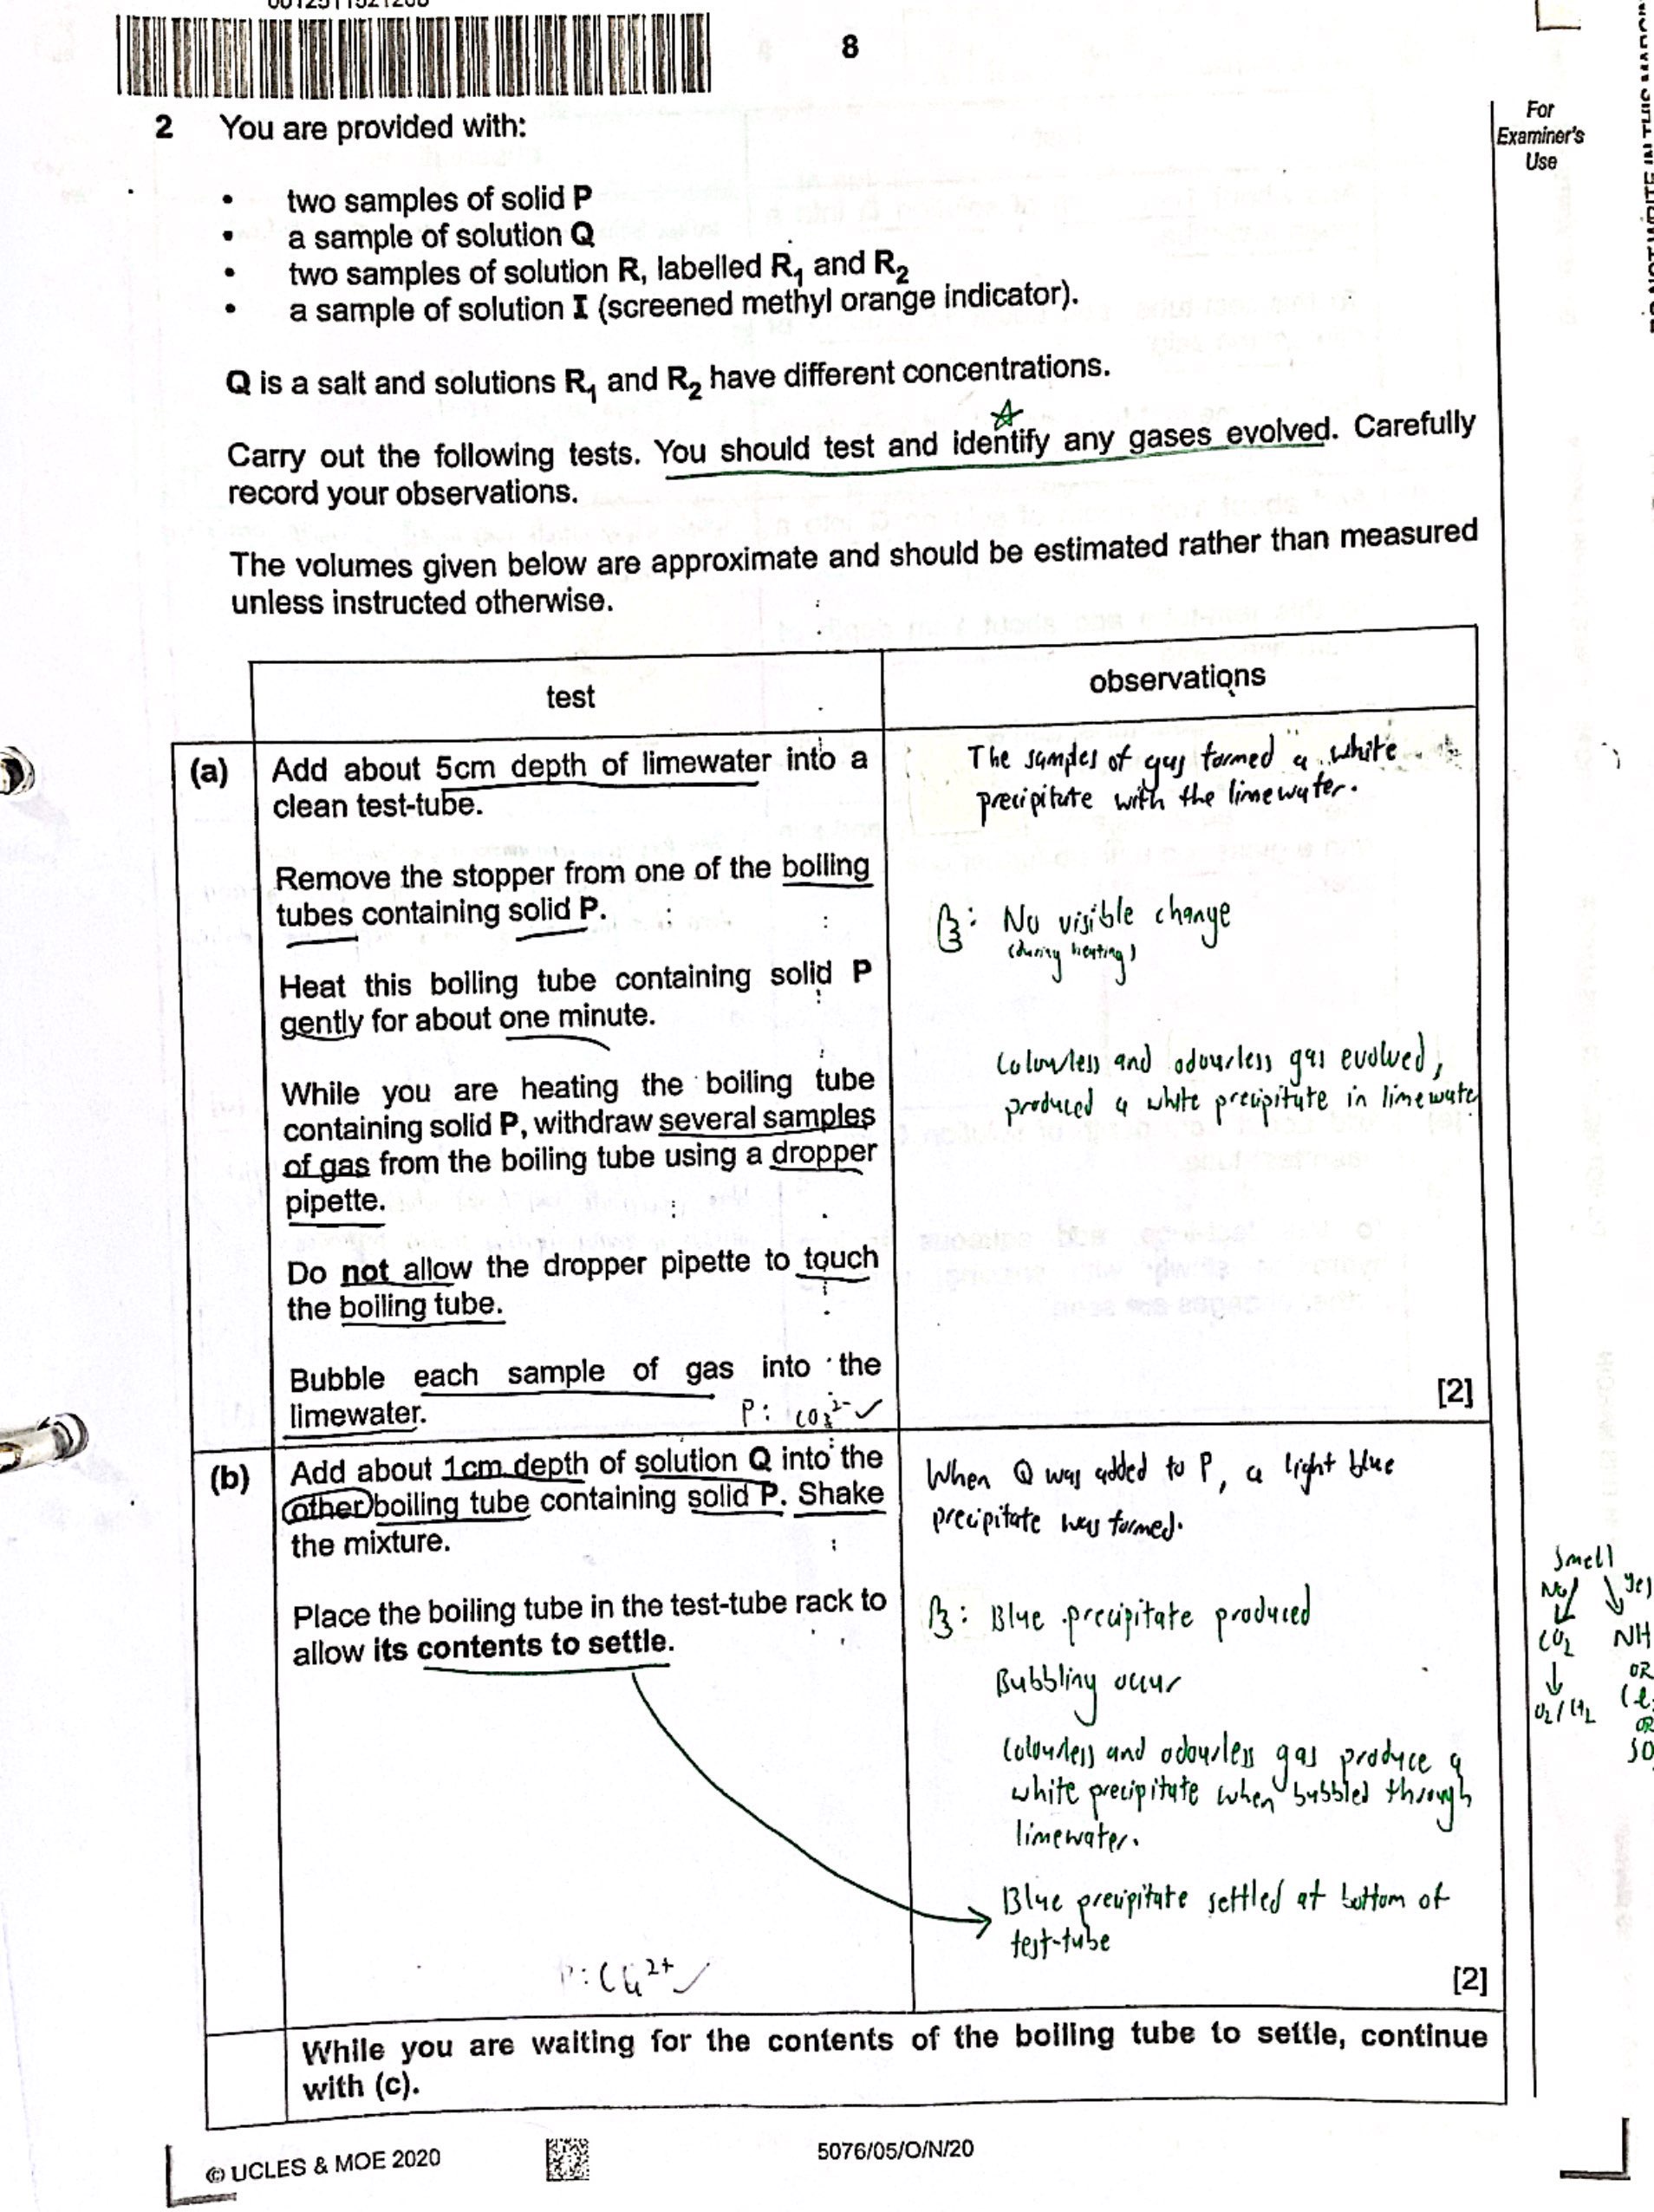 8
For
Examiner's
Use
2 You are provided with:
• two samples of solid P
• a sample of solution Q
• two samples of solution R, labelled R₁ and R₂
• a sample of solution I (screened methyl orange indicator).
Q is a salt and solutions R₁ and R₂ have different concentrations.
Carry out the following tests. You should test and identify any gases evolved. Carefully
record your observations.
The volumes given below are approximate and should be estimated rather than measured
unless instructed otherwise.
test
observations
(a) Add about 5cm depth of limewater into a
clean test-tube.
Remove the stopper from one of the boiling
tubes containing solid P.
Heat this boiling tube containing solid P
gently for about one minute.
While you are heating the boiling tube
containing solid P, withdraw several samples
of gas from the boiling tube using a dropper
pipette.
Do not allow the dropper pipette to touch
the boiling tube.
Bubble each sample of gas into the
limewater.
P: CO₃²⁻ ✓
The samples of gas formed a white
precipitate with the limewater.
No visible change
(during heating)
Colourless and odourless gas evolved,
produced a white precipitate in limewate
[2]
(b) Add about 1cm depth of solution Q into the
other boiling tube containing solid P. Shake
the mixture.
Place the boiling tube in the test-tube rack to
allow its contents to settle.
P: Cu²⁺ ✓
When Q was added to P, a light blue
precipitate was formed.
Blue precipitate produced
Bubbling occur
Colourless and odourless gas produce a
white precipitate when bubbled through
limewater.
Blue precipitate settled at bottom of
test-tube
[2]
Smell
No Yes
CO₂ NH
OR
O₂/H₂
OR
SO
While you are waiting for the contents of the boiling tube to settle, continue
with (c).
© UCLES & MOE 2020
5076/05/O/N/20